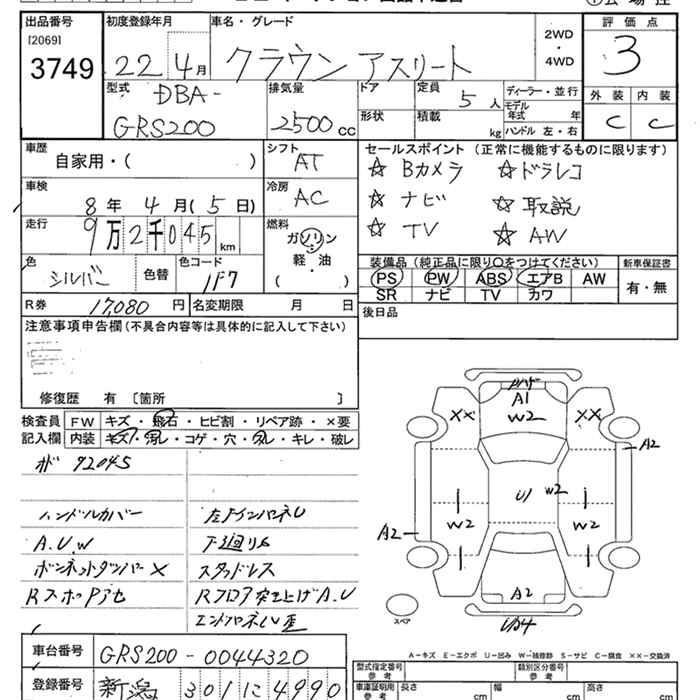 出品番号
[2069]
3749
初度登録年月
22年 4月
車名・グレード
クラウン アスリート
2WD
・
4WD
評価点
3
外装 内装
C C
型式
DBA-
GRS200
排気量
2500 cc
ドア
定員
5人
ディーラー・並行
モデル年式 年
形状
積載
kg
ハンドル 左・右
車歴
自家用・( )
シフト
AT
セールスポイント (正常に機能するものに限ります)
☆ Bカメラ ☆ドラレコ
☆ ナビ ☆ 取説
☆ TV ☆ AW
車検
8年 4月(5日)
冷房
AC
走行
9万2千045 km
燃料
ガソリン
軽・油
( )
色
シルバー
色替
色コード
1F7
装備品 (純正品に限り○をつけてください)
PS PW ABS エアB AW
SR ナビ TV カワ
新車保証書
有・無
R券 17,080 円
名変期限 月 日
後日品
注意事項申告欄 (不具合内容等は具体的に記入して下さい)
修復歴 有 [箇所 ]
検査員
記入欄
FW キズ・飛石・ヒビ割・リペア跡・×要
内装 キズ・汚レ・コゲ・穴・スレ・キレ・破レ
92045
ハンドルカバー
A.U.W
ボンネットダンパー×
左サインパネU
下廻りS
スタッドレス
Rフロア突き上げA.U
エンドパネル歪
A1
W2
×× ××
A2
U1 W2
W2 W2
A2
A2
スペア
A-キズ E-エクボ U-凹み W-補修跡 S-サビ C-腐食 ××-交換済
車台番号
GRS200-0044320
登録番号
新潟 301 に 4990
型式指定番号
参考
類別区分番号
参考
車庫証明用
参考
長さ cm
幅 cm
高さ cm